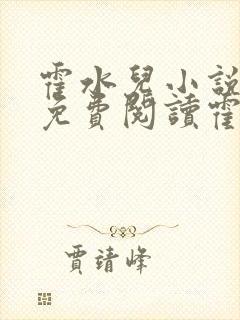 霍水兒小說
免費閱讀霍
賈靖峰